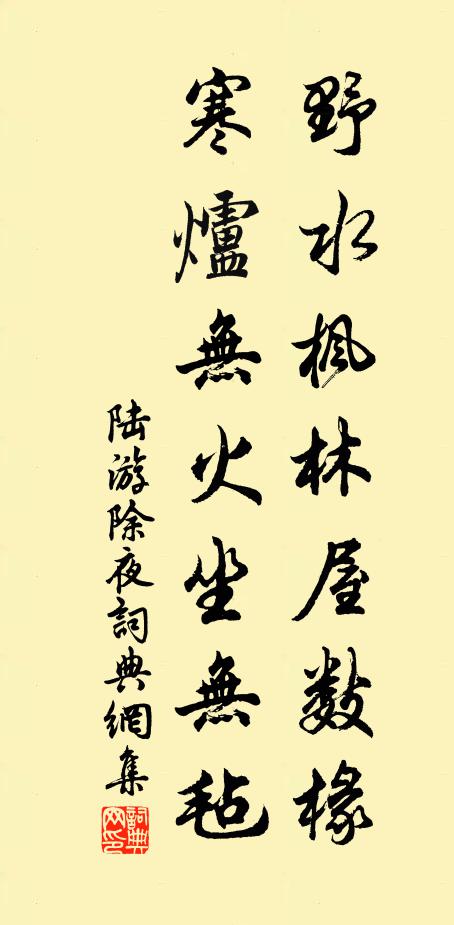 野水枫林屋数椽
寒爐無火坐無毡
陆游除夜詞典網集
詞典網印